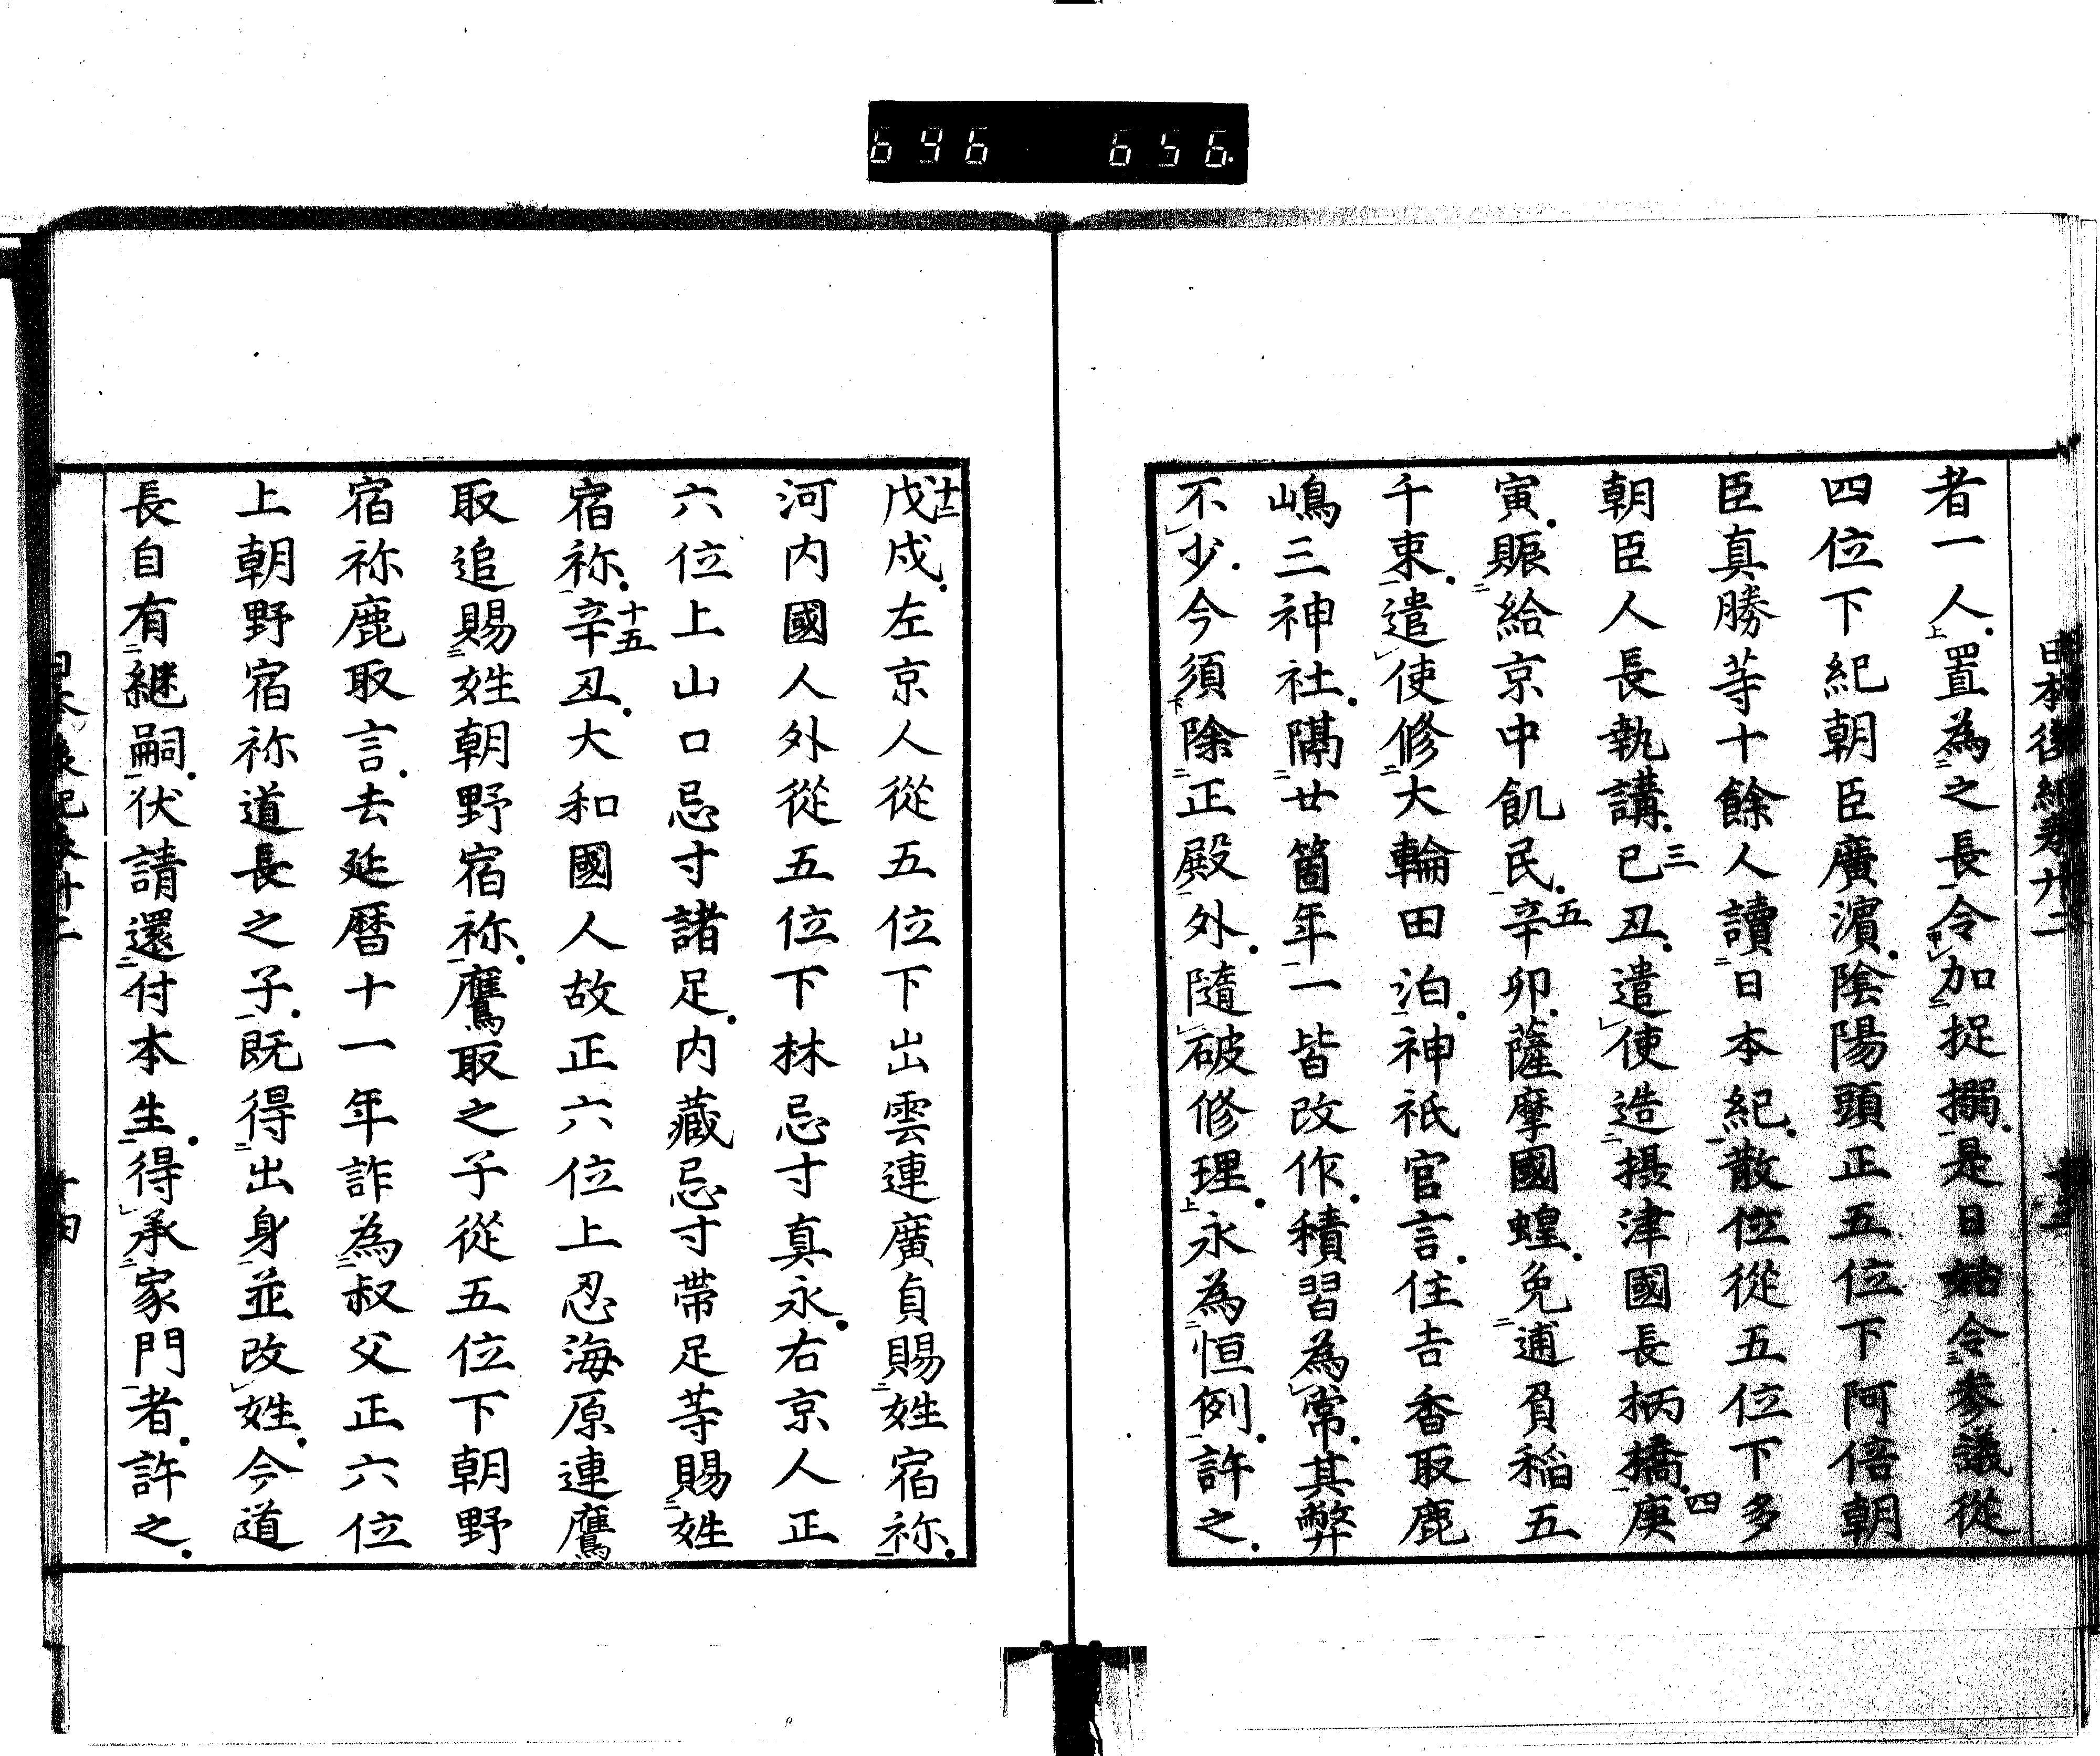 696 656
日本後紀卷廿二
者一人置為之長令加捉搦是日始令參議從
四位下紀朝臣廣濵陰陽頭正五位下阿倍朝
臣真勝等十餘人讀日本紀散位從五位下多
朝臣人長執講三己丑遣使造攝津國長柄橋四庚
寅賑給京中飢民五辛卯薩摩國蝗免逋負稲五
千束遣使修大輪田泊神祇官言住吉香取鹿
嶋三神社隔廿箇年一皆改作積習為常其弊
不少今須除正殿外隨破修理永為恒例許之
戊戌左京人從五位下出雲連廣貞賜姓宿祢
河内國人外從五位下林忌寸真永右京人正
六位上山口忌寸諸足内藏忌寸帶足等賜姓
宿祢十五辛丑大和國人故正六位上忍海原連鷹
取追賜姓朝野宿祢鷹取之子從五位下朝野
宿祢鹿取言去延暦十一年詐為叔父正六位
上朝野宿祢道長之子既得出身並改姓今道
長自有継嗣伏請還付本生得承家門者許之